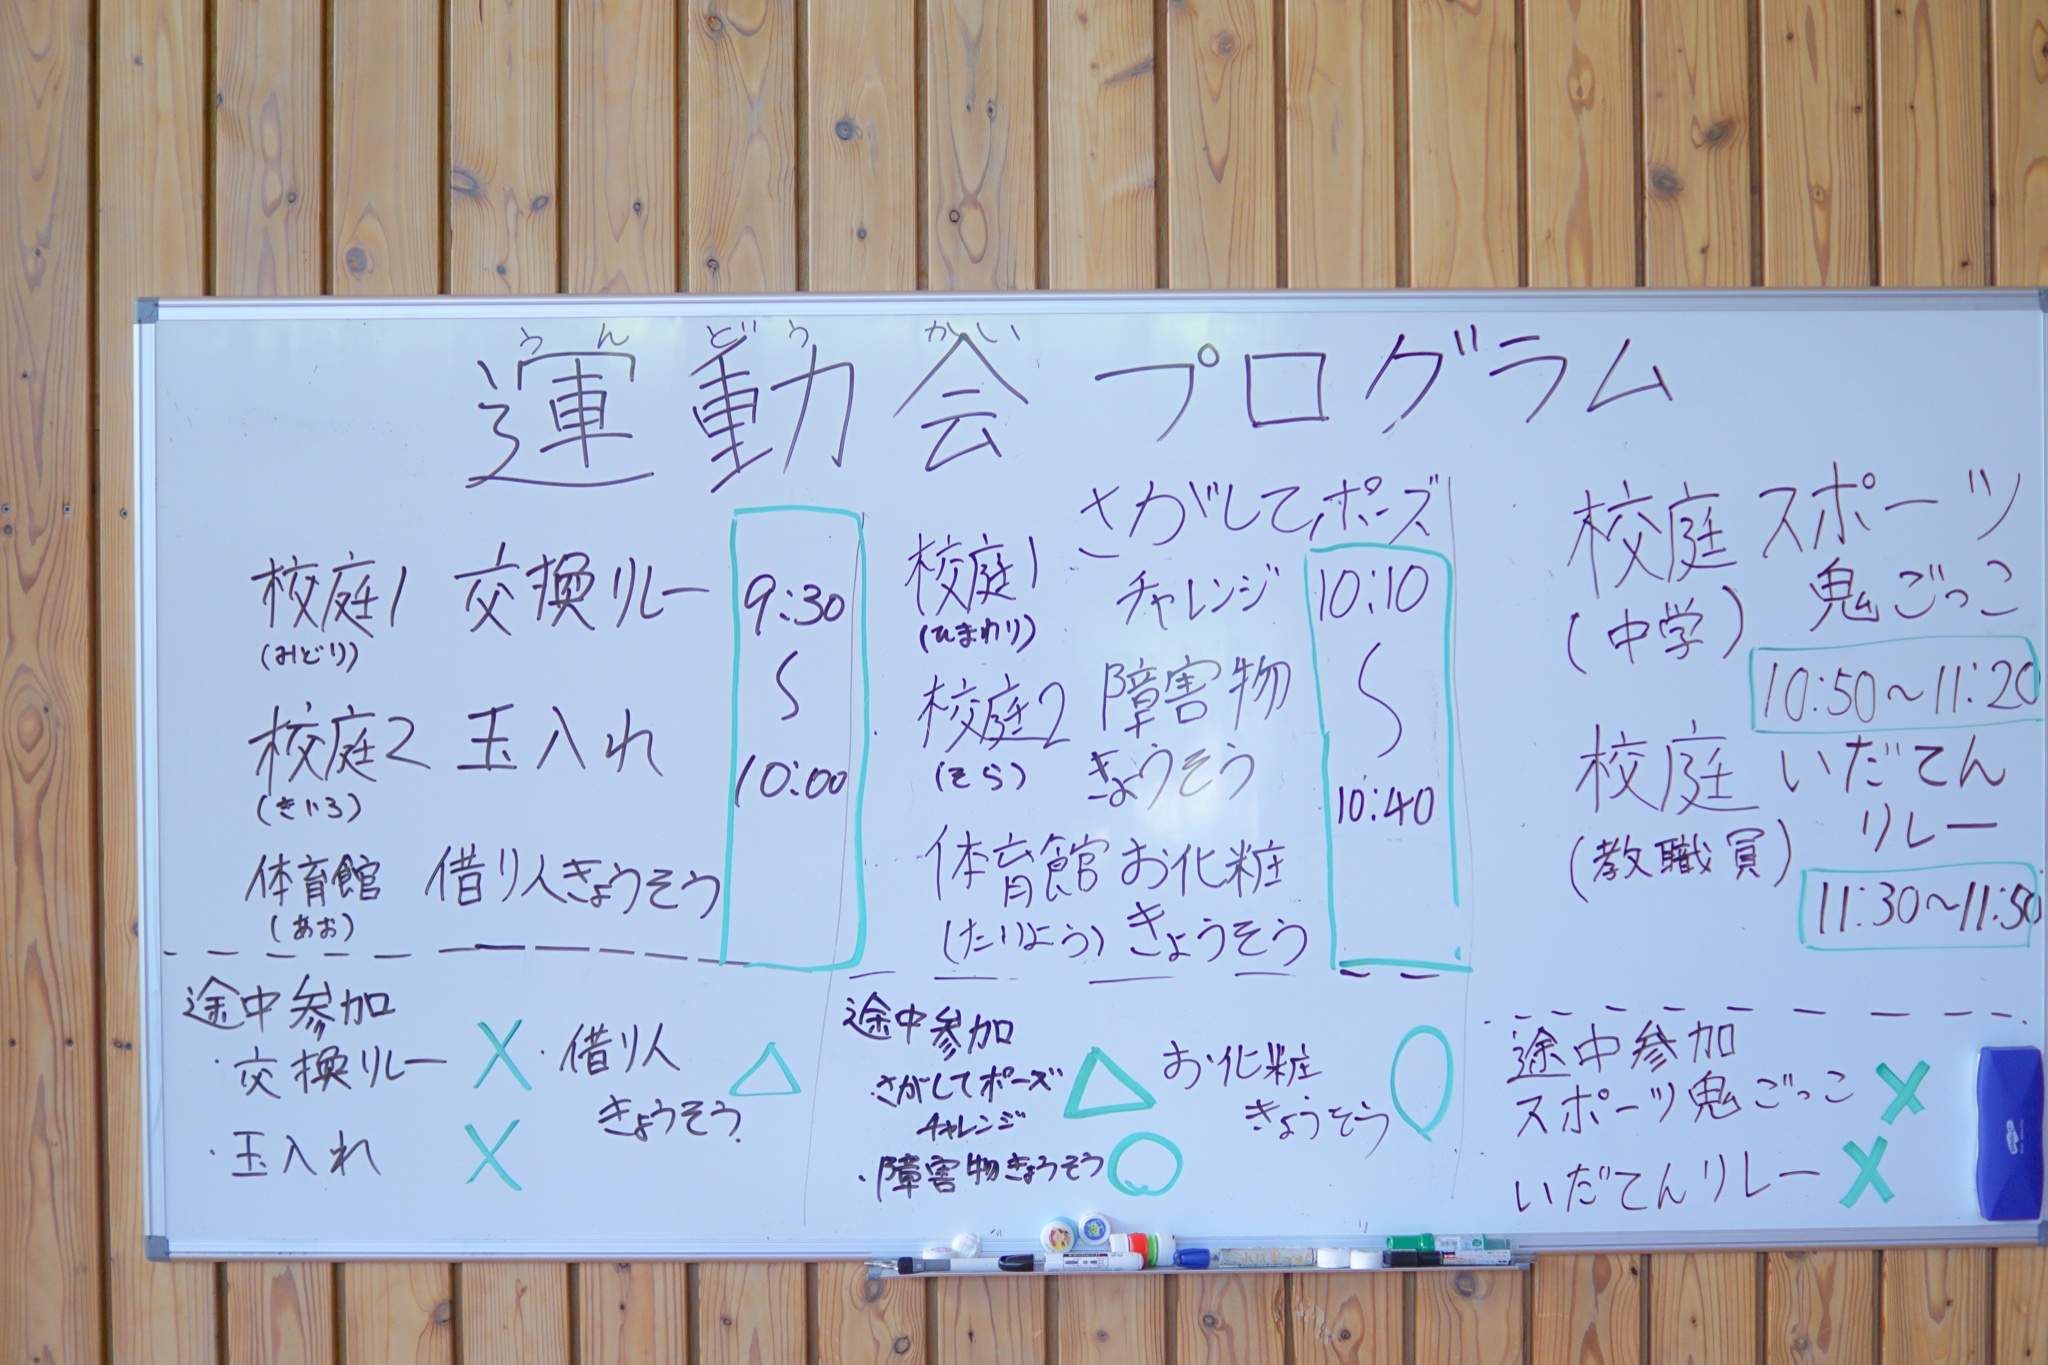 うんどうかい
運動会プログラム
校庭1 交換リレー
(みどり)
校庭2 玉入れ
(きいろ)
体育館 借り人きょうそう
(あお)
9:30
〜
10:00
途中参加
・交換リレー ×
・玉入れ ×
・借り人
きょうそう △
校庭1 さがしてポーズ
(ひまわり) チャレンジ
校庭2 障害物
(そら) きょうそう
体育館 お化粧
(たいよう) きょうそう
10:10
〜
10:40
途中参加
・さがしてポーズ
チャレンジ △
・障害物きょうそう ○
お化粧
きょうそう ○
校庭 スポーツ
(中学) 鬼ごっこ
10:50〜11:20
校庭 いだてん
(教職員) リレー
11:30〜11:50
途中参加
スポーツ鬼ごっこ ×
いだてんリレー ×